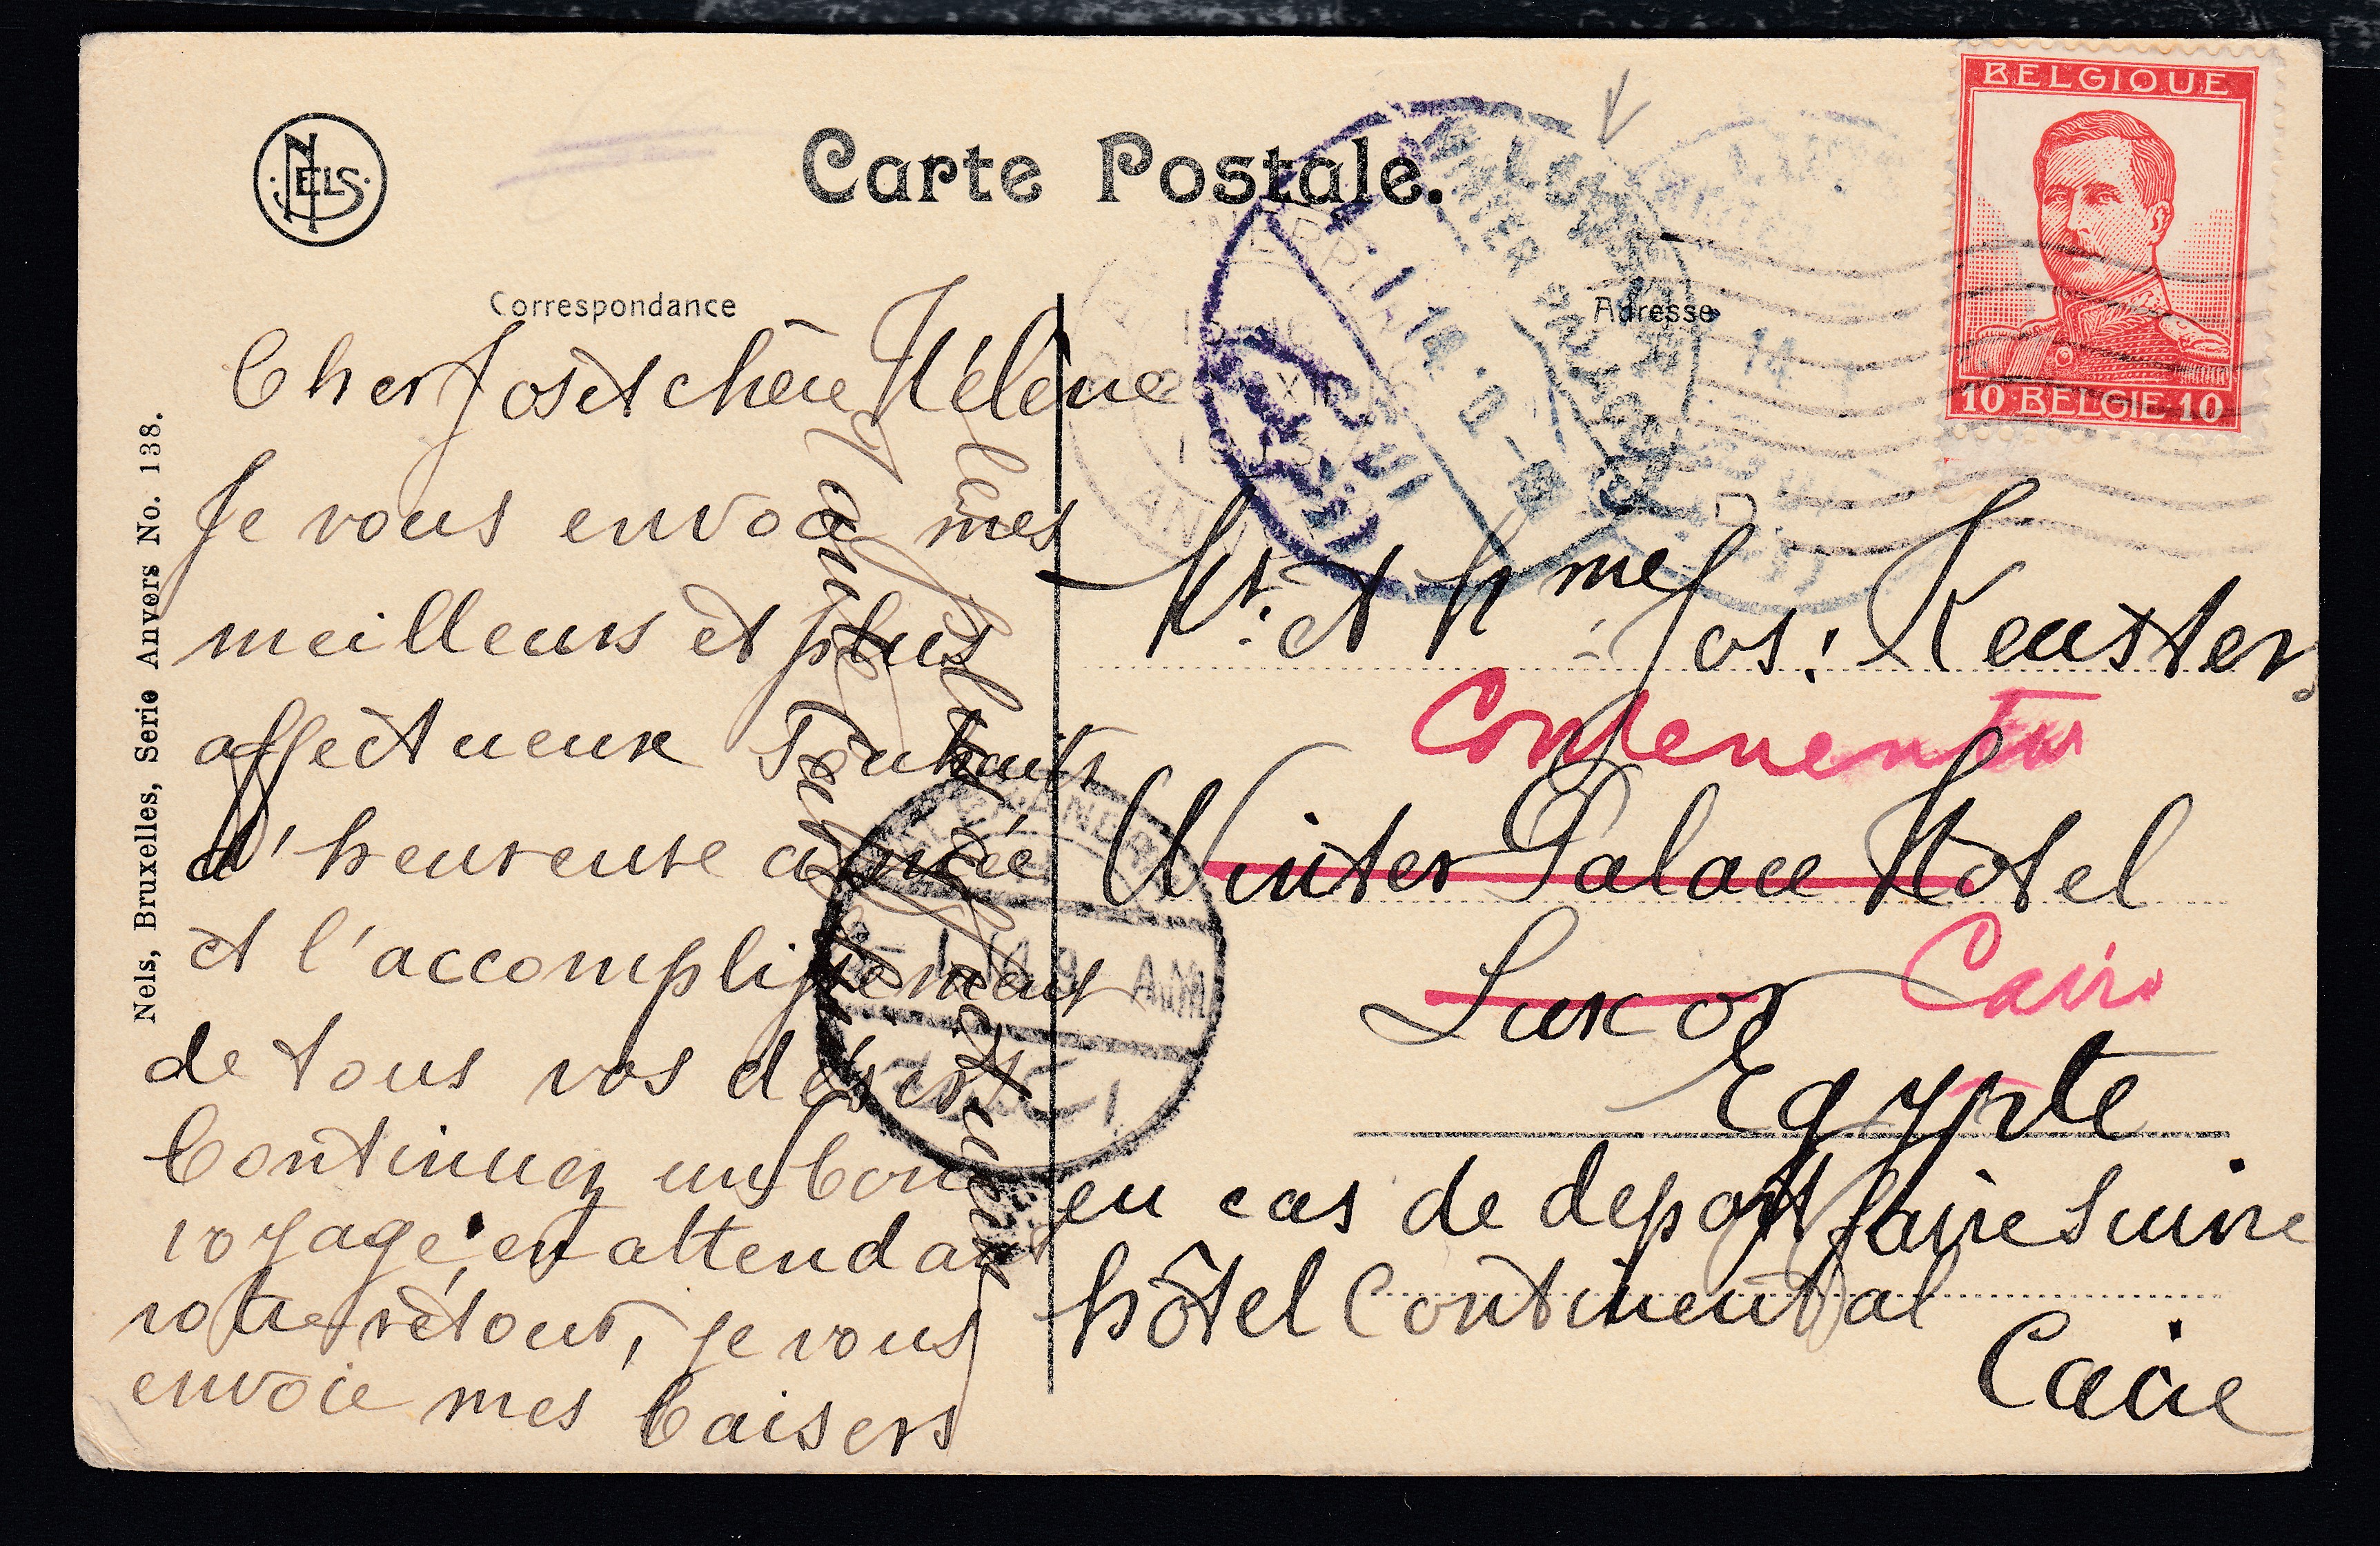 NELS
Carte Postale.
BELGIQUE
10 BELGIE 10
Correspondance
Adresse
Nels, Bruxelles, Serie Anvers No. 138.
Cher Jos et chère Hélène
Je vous envoa mes
meilleurs et plus
affectueux souhaits
d'heureuse année
et l'accomplissement
de tous vos désirs
Continuez un bon
voyage, en attendant
votre rétour, je vous
envoie mes baisers
Mr. et Mme Jos. Keusters
Winter Palace Hotel
Luxor
Cairo
Egypte
en cas de depart faire suivre
hôtel Continental
Caire
WINTER PALACE
ALEXANDRIA
AM